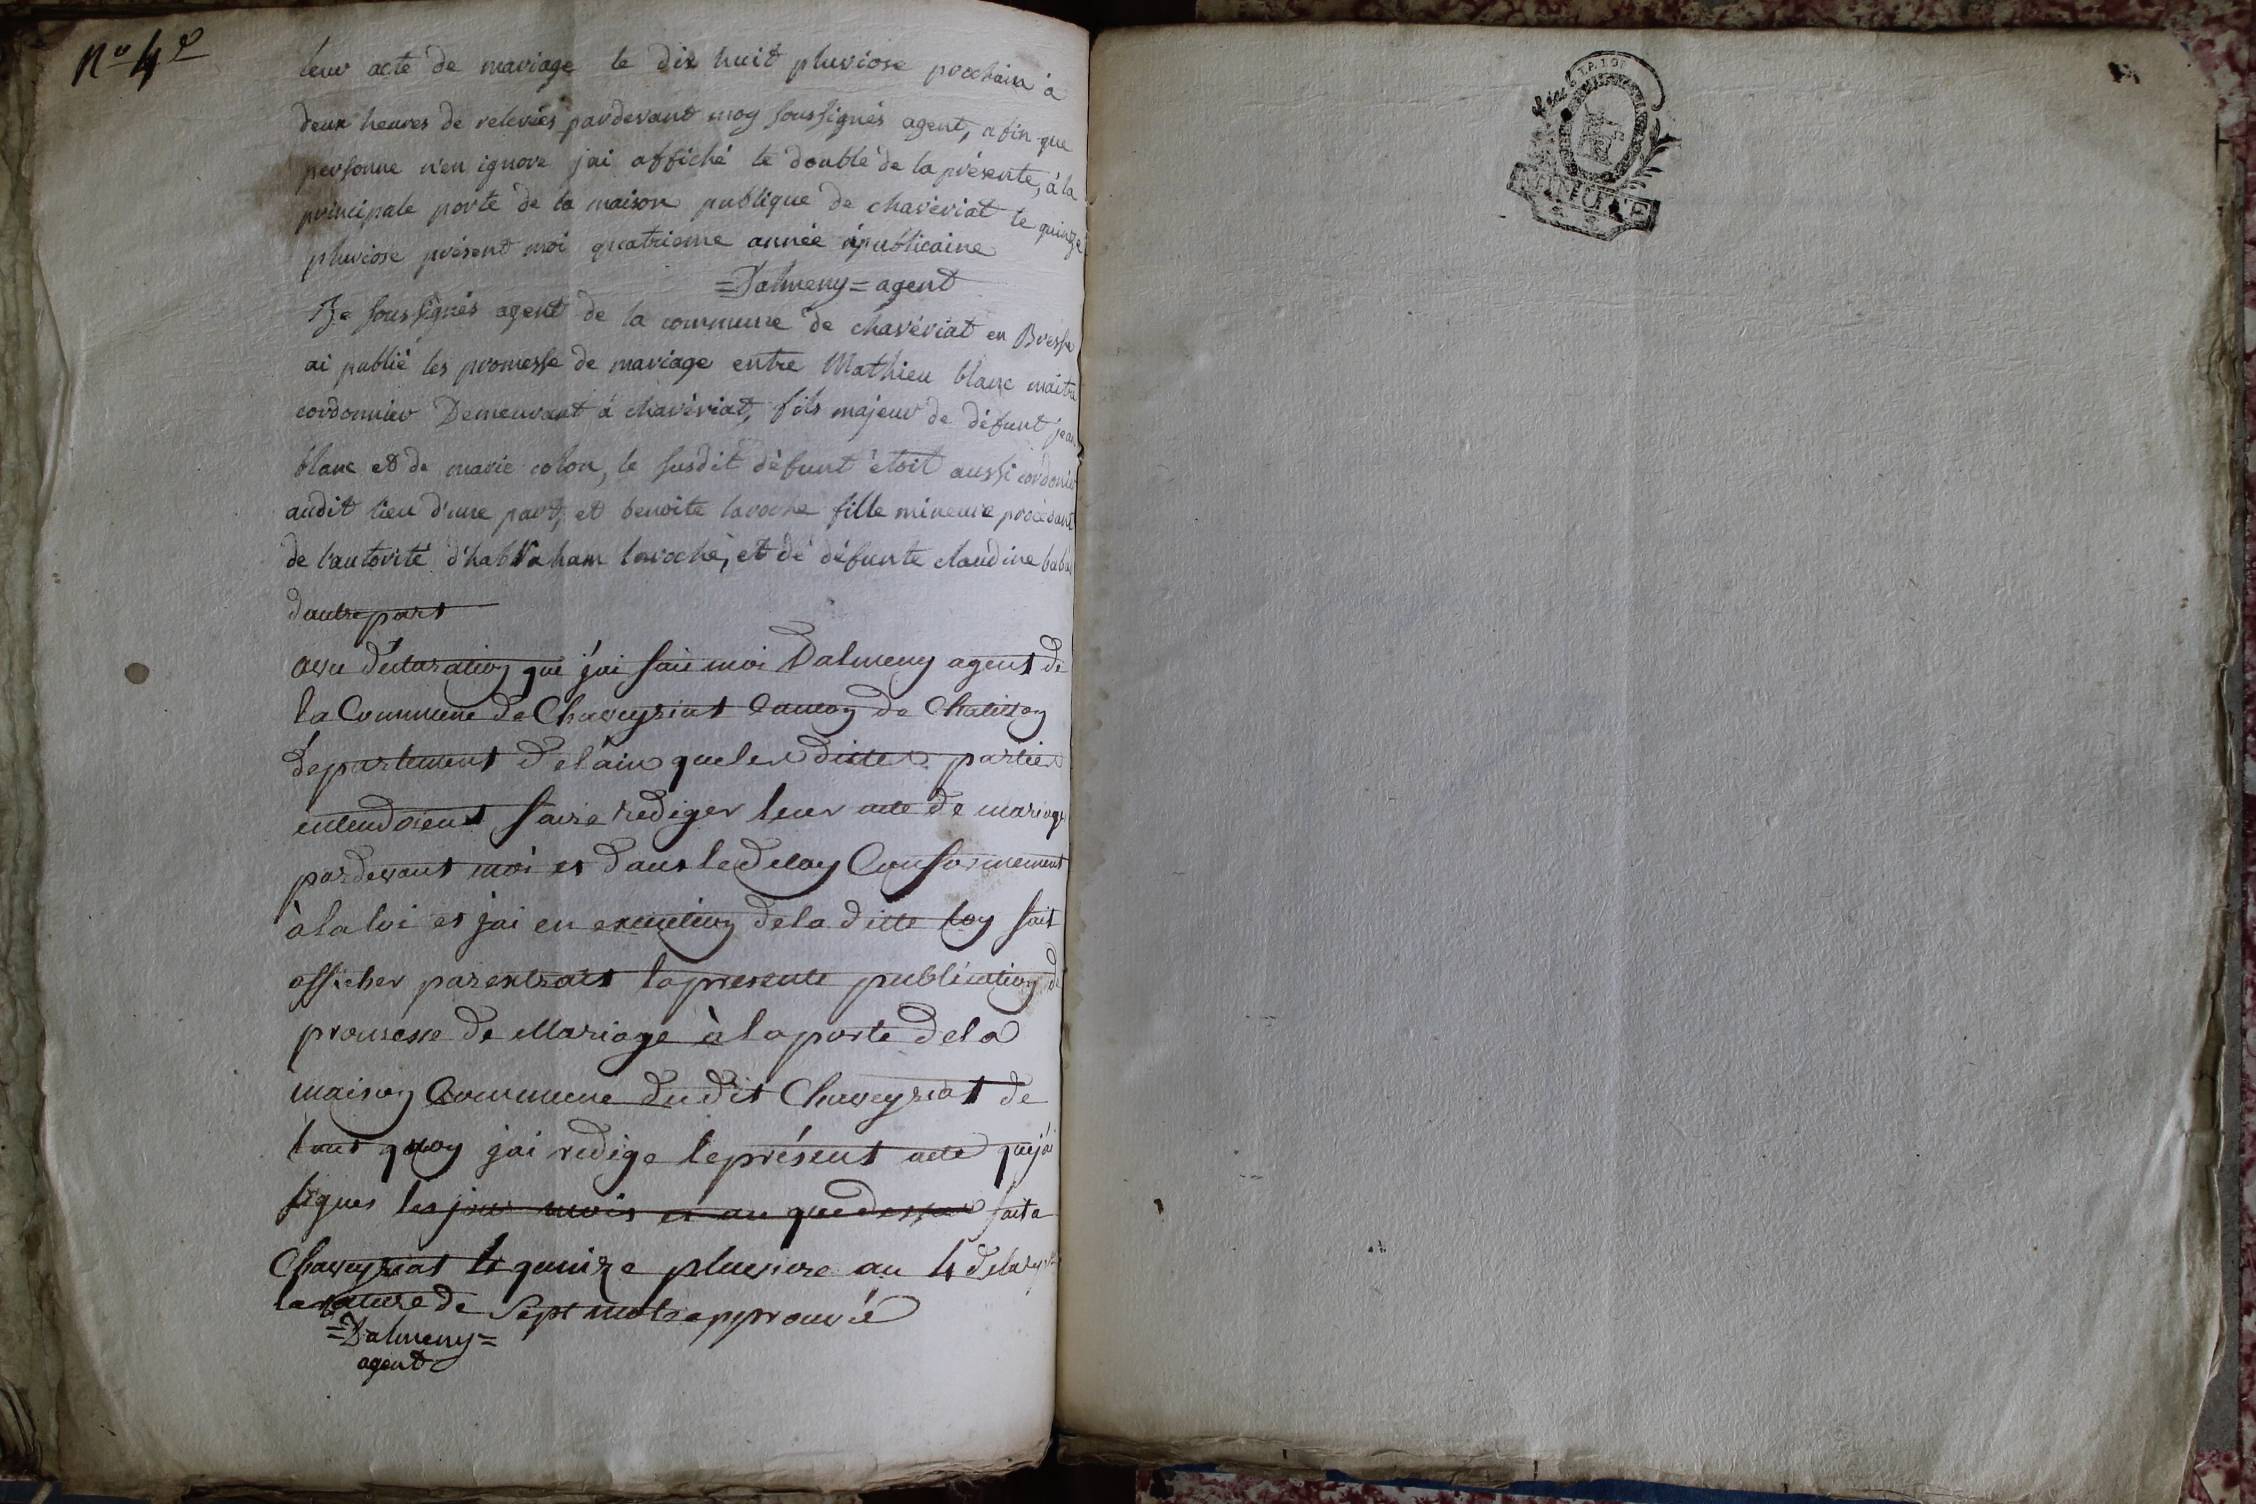 No 4e
leur acte de mariage le dix huit pluviose prochain à
deux heures de relevées pardevant moy soussignés agent, afin que
personne n'en ignore jai affiché le double de la présente, à la
principale porte de la maison publique de chavériat le quinze
pluviose présent moi quatrieme année républicaine
=Dalmeny= agent
Je soussignés agent de la commune de chavériat en Bresse
ai publié les promesse de mariage entre Mathieu blanc maitre
cordonnier Demeurant á chavériat, fils majeur de défunt jean
blanc et de marie colon, le susdit défunt étoit aussi cordonier
audit lieu d'une part, et benoite laroche fille mineure procédant
de l'autorité d'habraham laroche, et de défunte claudine
dautre part
déclaration que j'ai fait moi Dalmeny agent de
la Commune de Chaveyriat Canton de Chatillon
département de l'ain que les dittes parties
entendoient faire rediger leur acte de mariage
pardevant moi et dans le delay Conformement
à la loi et j'ai en execution de la ditte loy fait
afficher par extrait la presente publication de
promesse de Mariage à la porte de la
maison Commune du dit Chaveyriat de
tout quoy j'ai redige le présent acte que j'ai
signes les jour mois et an que dessus fait a
Chaveyriat le quinze pluviose an 4 de la
la rature de sept mots approuvé
=Dalmeny=
agent